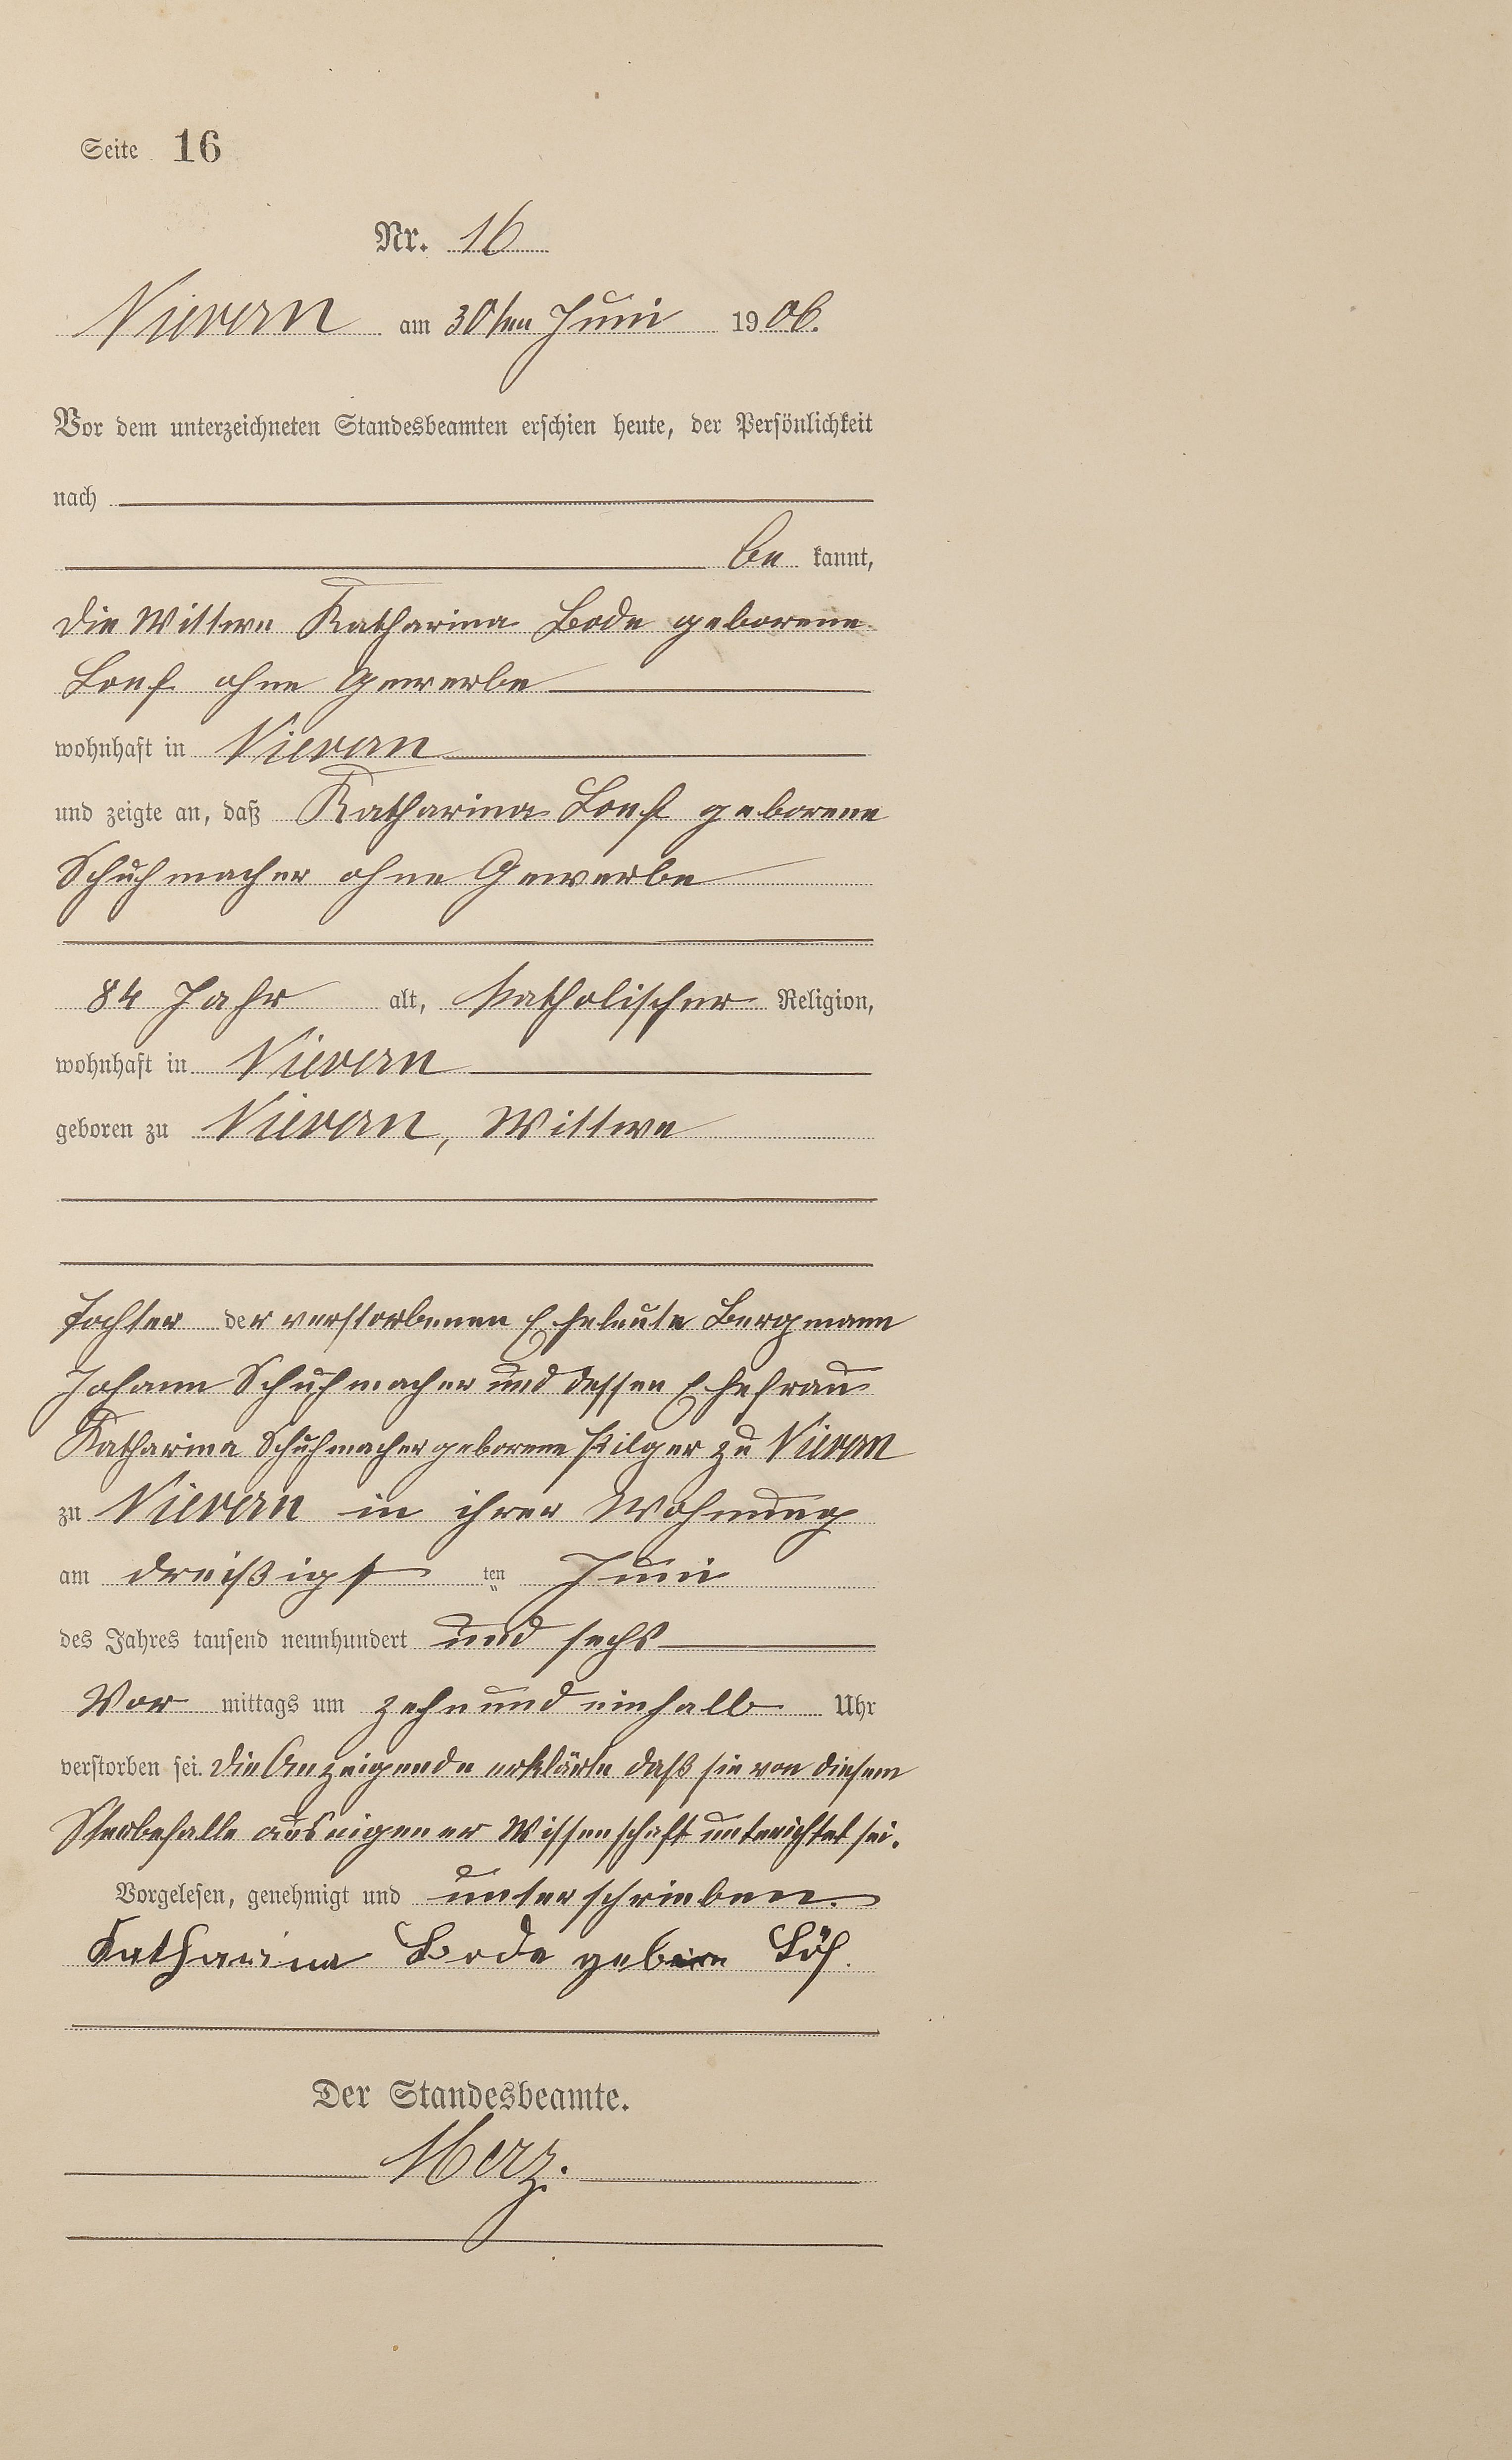 Seite 16
Nr. 16
Nievern am 30ten Juni 1906.
Vor dem unterzeichneten Standesbeamten erschien heute, der Persönlichkeit
nach
be kannt,
die Wittwe Katharina Bode geborene
Loef ohne Gewerbe
wohnhaft in Nievern
und zeigte an, daß Katharina Loef geborene
Schuhmacher ohne Gewerbe
84 Jahr alt, katholischer Religion,
wohnhaft in Nievern
geboren zu Nievern, Wittwe
Tochter der verstorbenen Eheleute Bergmann
Johann Schuhmacher und dessen Ehefrau
Katharina Schuhmacher geborene Pilger zu Nievern
zu Nievern in ihrer Wohnung
am dreißigst ten Juni
des Jahres tausend neunhundert und sechs
Vor mittags um zehnundeinhalb Uhr
verstorben sei. Die Anzeigende erklärte daß sie von diesem
Sterbefalle aus eigener Wissenschaft unterichtet sei.
Vorgelesen, genehmigt und unterschrieben.
Katharina Bode Löf.
Der Standesbeamte.
Merz.